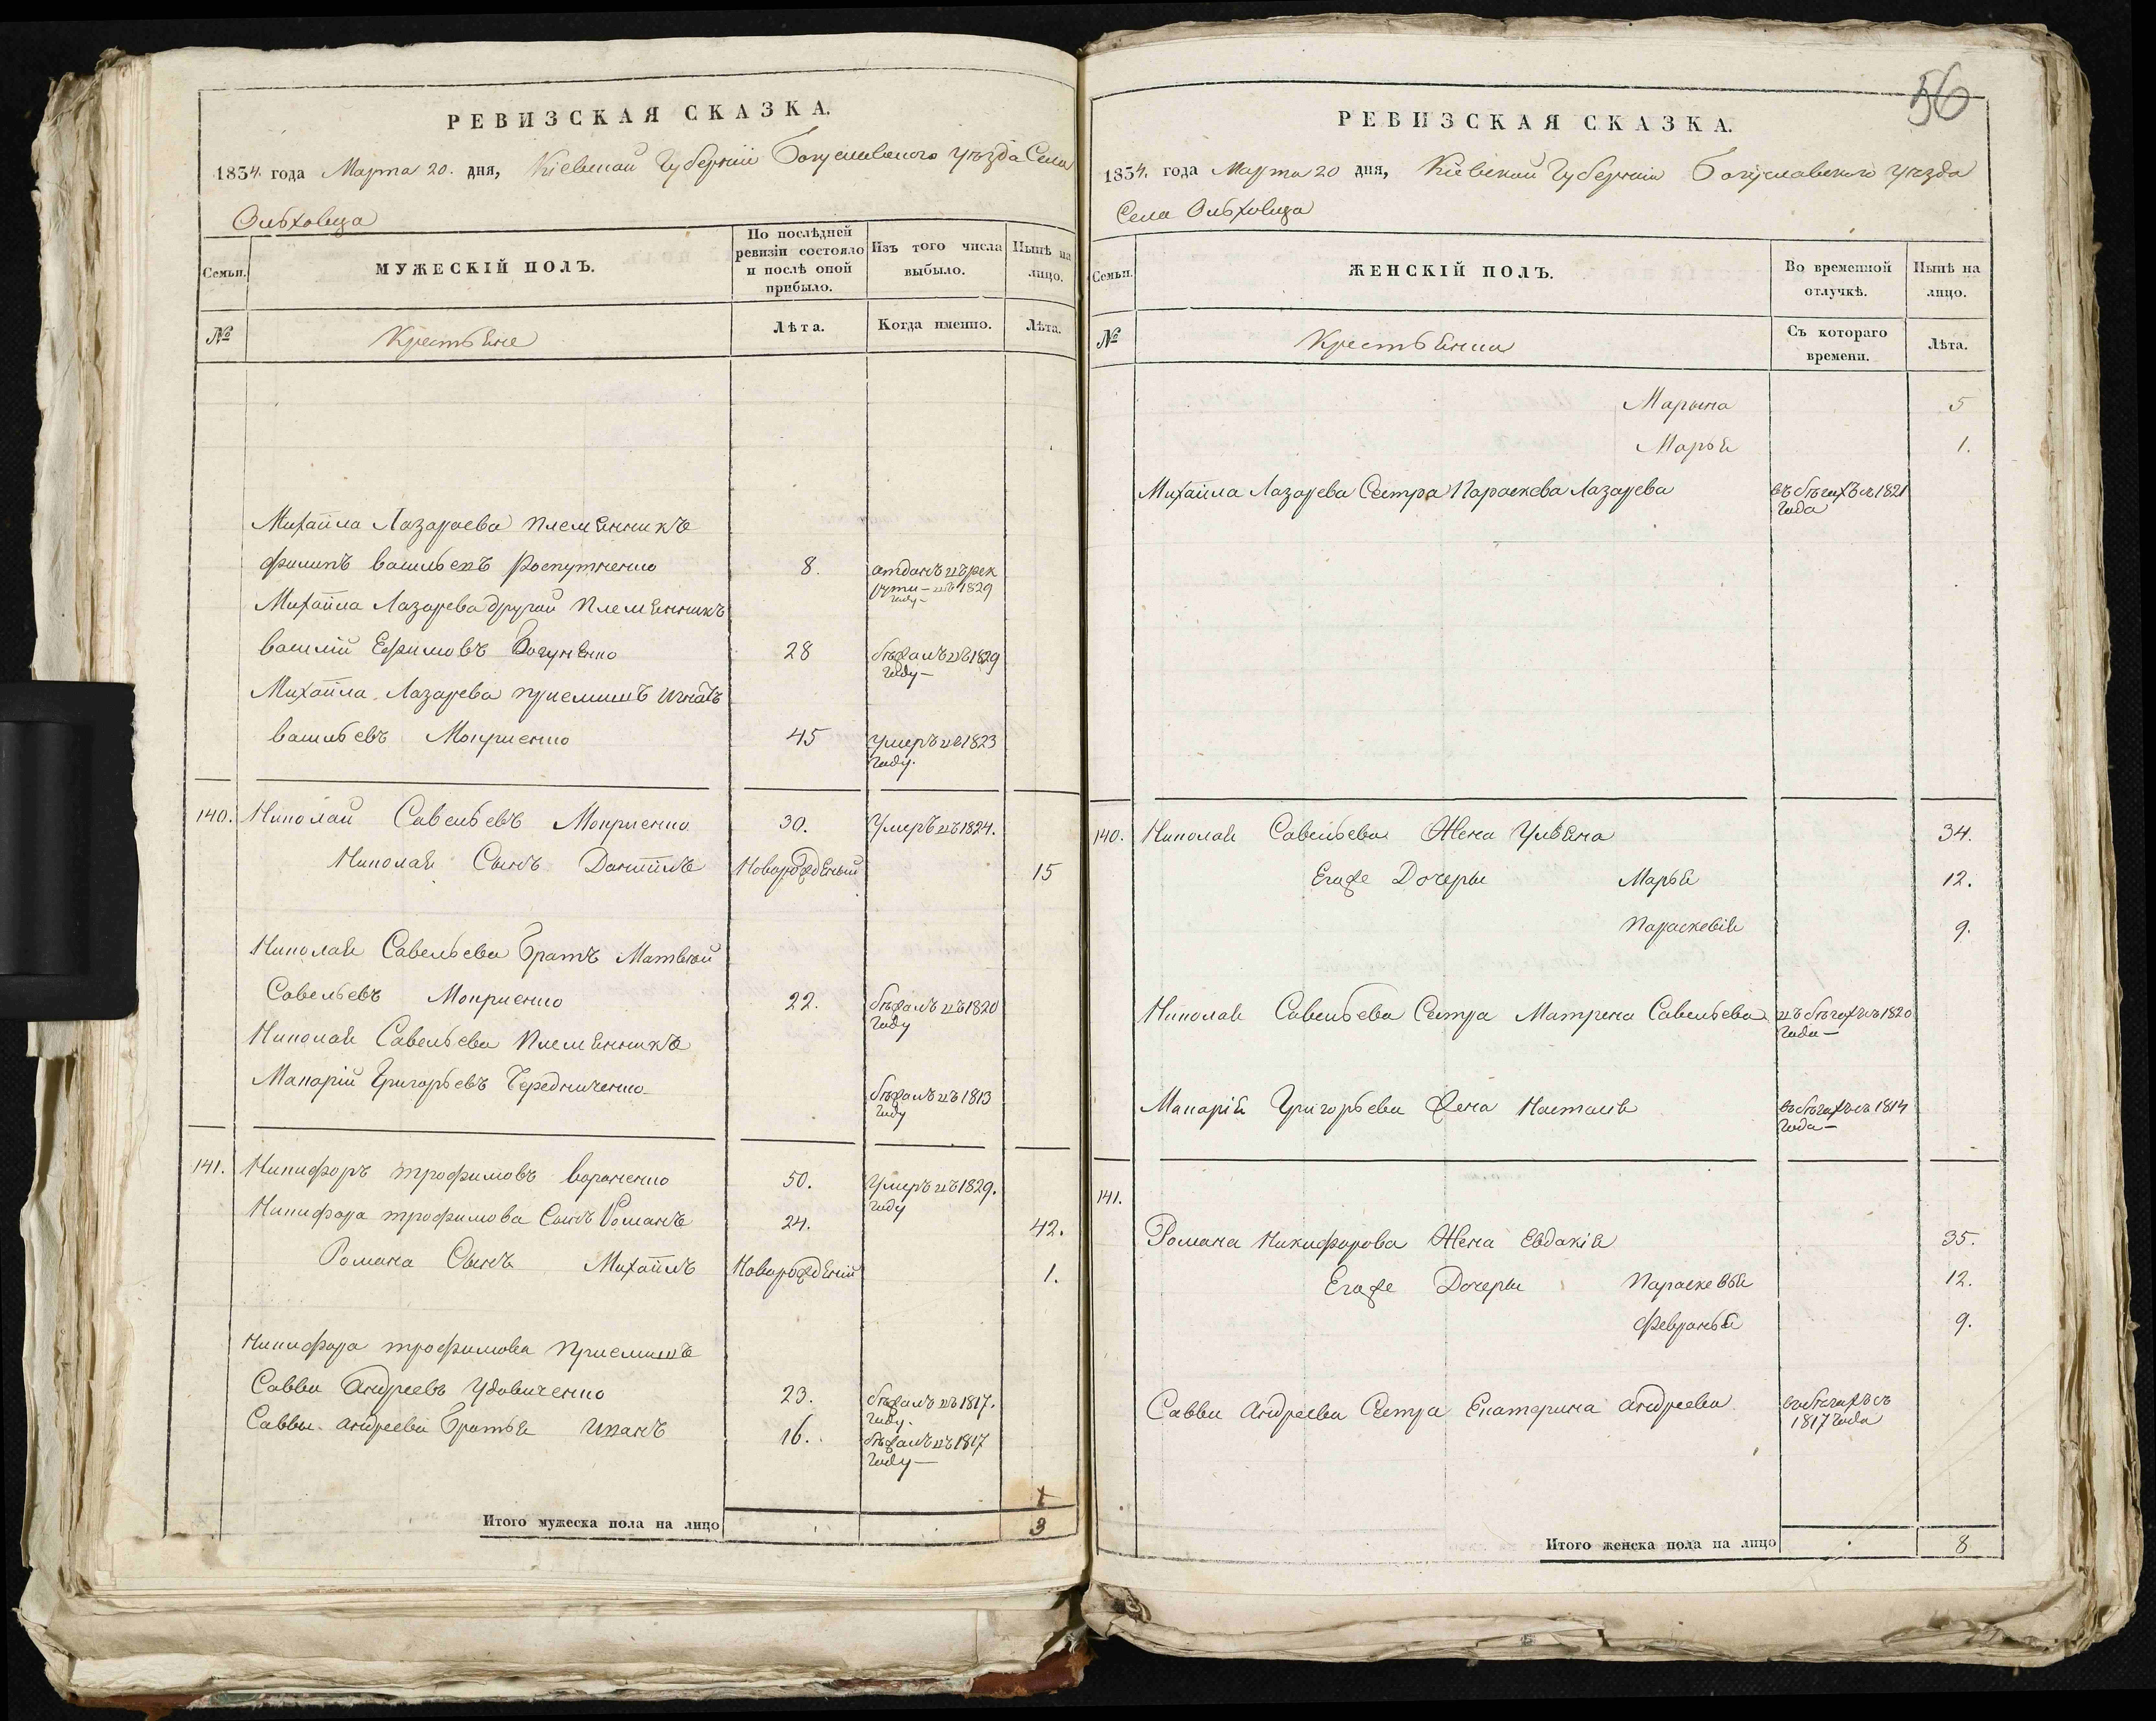 РЕВИЗСКАЯ СКАЗКА.
1834. года Марта 20. дня, Кіевской Губерніи Богуславского уѣзда Села
Ольховца
Семьи.
МУЖЕСКІЙ ПОЛЪ.
По послѣдней ревизіи состояло и послѣ оной прибыло.
Изъ того числа выбыло.
Нынѣ на лицо.
№
Крестьяне
Лѣта.
Когда именно.
Лѣта.
Михайла Лазарева племянникъ
Филипъ васильевъ 8. отданъ въ рек
рути въ 1829
году
Михайла Лазарева другой племянникъ
василій Ефимовъ 28 бѣжалъ въ 1829
году
Михайла Лазарева приемишъ Игнатъ
васильевъ Мокриенко 45 умеръ въ 1823
году.
140. Николай Савельевъ Мокриенко 30. Умеръ въ 1824.
Николая Сынъ Даніилъ Новорожденый 15
Николая Савельева братъ Матвѣй
Савельевъ Мокриенко 22. бѣжалъ въ 1820
году
Николая Савельева племянникъ
Макарій Григорьевъ Чередниченко бѣжалъ въ 1813
году
141. Никифоръ трофимовъ вороненко 50. Умеръ въ 1829.
году
Никифора трофимова Сынъ Романъ 24. 42.
Романа Сынъ Михайлъ Новорожденій 1.
Никифора трофимова приемишъ
Савва Андреевъ Удовиченко 23. бѣжалъ въ 1817.
году.
Саввы Андреева братья Иванъ 16. бѣжалъ въ 1817
году
Итого мужеска пола на лицо 3
56
РЕВИЗСКАЯ СКАЗКА.
1834. года Марта 20 дня, Кіевской Губерніи Богуславского уѣзда
Села Ольховца
Семьи.
ЖЕНСКІЙ ПОЛЪ.
Во временной отлучкѣ.
Нынѣ на лицо.
№
Крестьянки
Съ котораго времени.
Лѣта.
Марына 5
Марья 1.
Михайла Лазарева Сестра Параскева Лазарева въ бѣгахъ съ 1821
года
140. Николая Савельева Жена Ульяна 34.
Егоже Дочеры Марья 12.
Параскевія 9.
Николая Савельева Сестра Матрена Савельева въ бѣгахъ съ 1820
года
Макарія Григорьева Жена Настасія въ бѣгахъ съ 1814
года
141.
Романа Никифорова Жена Евдокія 35.
Егоже Дочеры Параскевья 12.
Февронья 9.
Саввы Андреева Сестра Екатерина Андреева въ бѣгахъ съ
1817 года
Итого женска пола на лицо 8